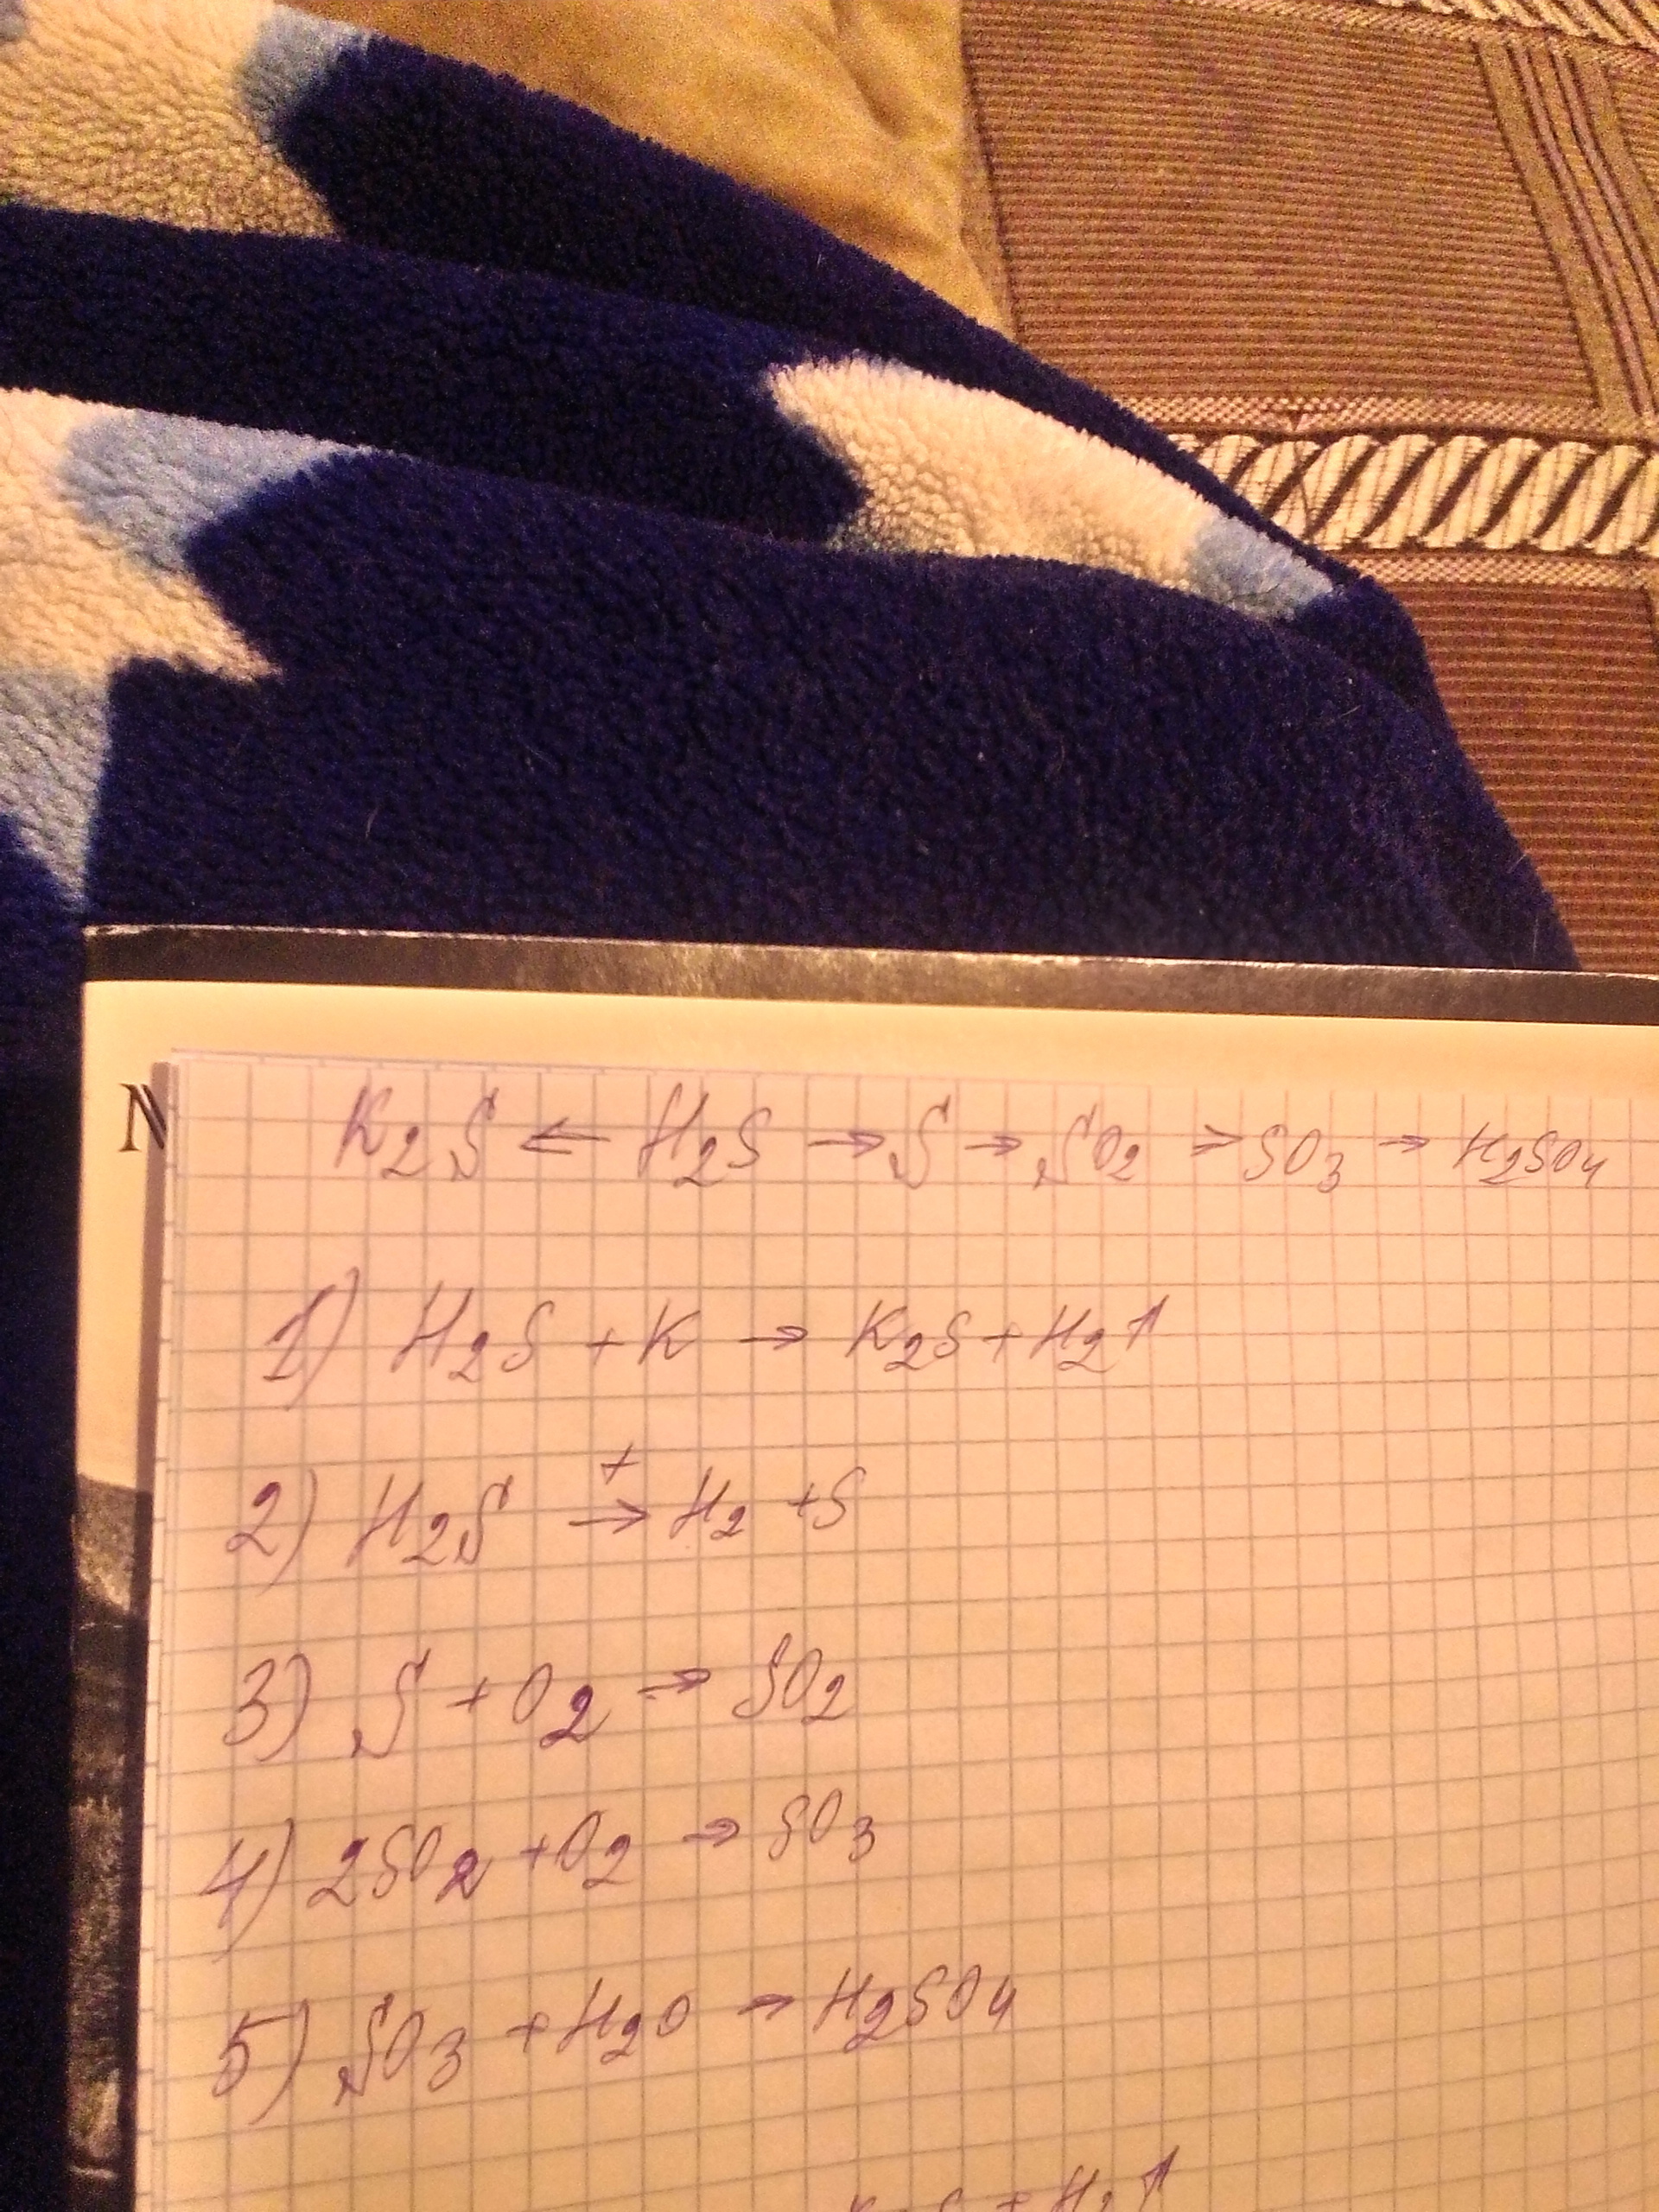 K₂S ← H₂S → S → SO₂ → SO₃ → H₂SO₄
N
1) H₂S + K → K₂S + H₂↑
2) H₂S t→ H₂ + S
3) S + O₂ → SO₂
4) 2SO₂ + O₂ → SO₃
5) SO₃ + H₂O → H₂SO₄
S + H₂↑